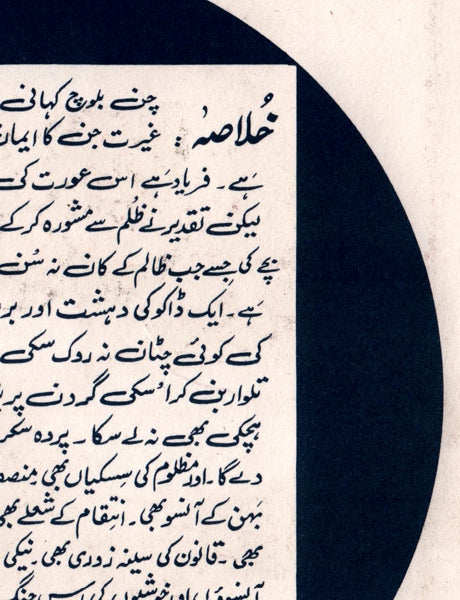 خُلاصہ : چن بلوچ کہانی
غیرت جن کا ایمان
ہے۔ فریاد ہے اس عورت کی
لیکن تقدیر نے ظُلم سے مشورہ کر کے
بچے کی جسے جب ظالم کے کان نہ سُن
ہے۔ ایک ڈاکو کی دہشت اور بر
کی کوئی چٹان نہ روک سکی
تلوار بن کر اُسکی گردن پر
ہچکی بھی نہ لے سکا۔ پردہ سکر
دے گا۔ اور مظلوم کی سسکیاں بھی مِنصف
بہن کے آنسو بھی۔ انتقام کے شعلے بھی
بھی۔ قانون کی سینہ زوری بھی۔ نیکی
آنسوؤں اور خوشیوں کی اس جنگ